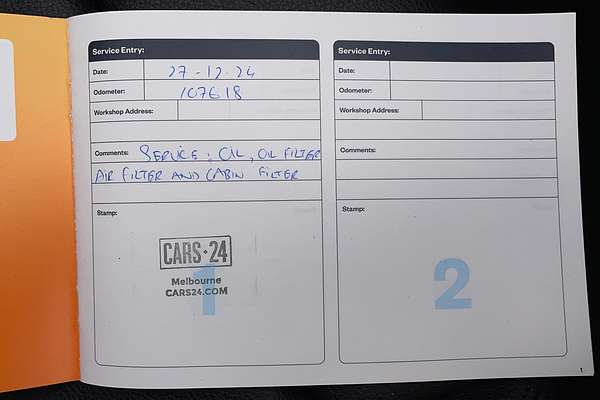 Service Entry:
Date: 27-12-24
Odometer: 107618
Workshop Address:
Comments: SERVICE: OIL, OIL FILTER
AIR FILTER AND CABIN FILTER
Stamp:
CARS·24
1
Melbourne
CARS24.COM
Service Entry:
Date:
Odometer:
Workshop Address:
Comments:
Stamp:
2
1